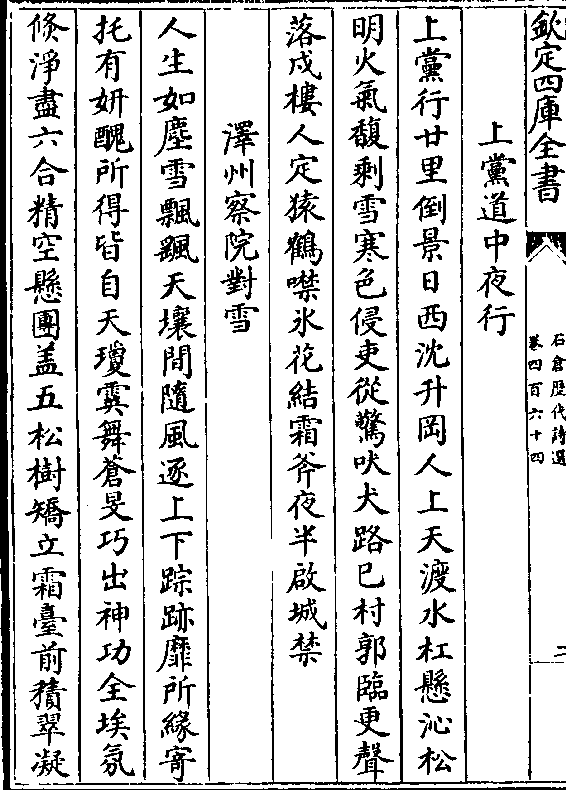 欽定四庫全書
石倉歷代詩選
卷四百六十四
二
上黨道中夜行
上黨行廿里倒景日西沈升岡人上天渡水杠懸沁松
明火氣馥剩雪寒色侵吏從驚吠犬路已村郭臨更聲
落戍樓人定猿鶴噤氷花結霜斧夜半啟城禁
澤州察院對雪
人生如塵雪飄颻天壤間隨風逐上下踪跡靡所緣寄
托有妍醜所得皆自天瓊霙舞蒼旻巧出神功全埃氛
倐淨盡六合精空懸團盖五松樹矯立霜臺前積翠凝